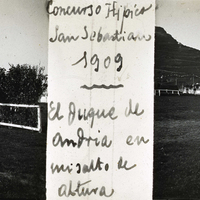 Concurso Hípico
San Sebastian
1909
El Duque de
Andria en
un salto de
altura